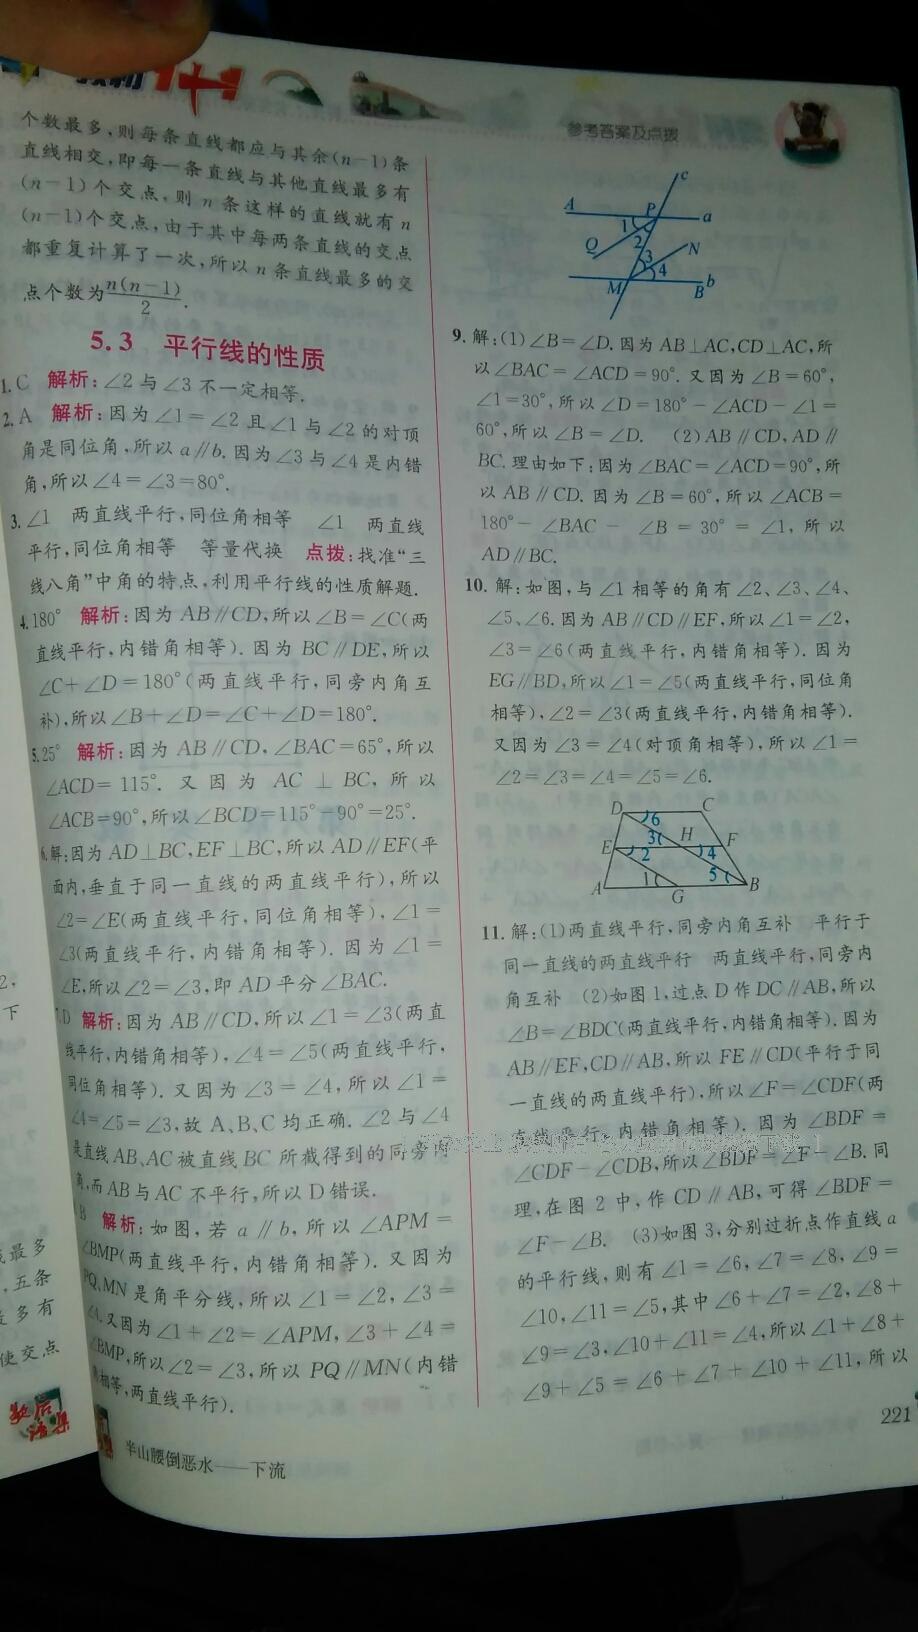 教材1+1
参考答案及点拨
个数最多,则每条直线都应与其余(n-1)条
直线相交,即每一条直线与其他直线最多有
(n-1)个交点,则 n 条这样的直线就有 n
(n-1)个交点,由于其中每两条直线的交点
都重复计算了一次,所以 n 条直线最多的交
点个数为n(n-1)/2.
5.3 平行线的性质
1.C 解析:∠2与∠3不一定相等.
2.A 解析:因为∠1=∠2且∠1与∠2的对顶
角是同位角,所以a∥b.因为∠3与∠4是内错
角,所以∠4=∠3=80°.
3.∠1 两直线平行,同位角相等 ∠1 两直线
平行,同位角相等 等量代换 点拨:找准“三
线八角”中角的特点,利用平行线的性质解题.
4.180° 解析:因为AB∥CD,所以∠B=∠C(两
直线平行,内错角相等).因为BC∥DE,所以
∠C+∠D=180°(两直线平行,同旁内角互
补),所以∠B+∠D=∠C+∠D=180°.
5.25° 解析:因为AB∥CD,∠BAC=65°,所以
∠ACD=115°.又因为AC⊥BC,所以
∠ACB=90°,所以∠BCD=115°-90°=25°.
6.解:因为AD⊥BC,EF⊥BC,所以AD∥EF(平
面内,垂直于同一直线的两直线平行),所以
∠2=∠E(两直线平行,同位角相等),∠1=
∠3(两直线平行,内错角相等).因为∠1=
∠E,所以∠2=∠3,即AD平分∠BAC.
7.D 解析:因为AB∥CD,所以∠1=∠3(两直
线平行,内错角相等),∠4=∠5(两直线平行,
同位角相等).又因为∠3=∠4,所以∠1=
∠4=∠5=∠3,故A、B、C均正确.∠2与∠4
是直线AB、AC被直线BC所截得到的同旁内
角,而AB与AC不平行,所以D错误.
B 解析:如图,若a∥b,所以∠APM=
∠BMP(两直线平行,内错角相等).又因为
PQ、MN是角平分线,所以∠1=∠2,∠3=
∠4.又因为∠1+∠2=∠APM,∠3+∠4=
∠BMP,所以∠2=∠3,所以PQ∥MN(内错
角相等,两直线平行).
半山腰倒恶水——下流
A P c a
1 2 Q N
3 4 M B b
9.解:(1)∠B=∠D.因为AB⊥AC,CD⊥AC,所
以∠BAC=∠ACD=90°.又因为∠B=60°,
∠1=30°,所以∠D=180°-∠ACD-∠1=
60°,所以∠B=∠D. (2)AB∥CD,AD∥
BC.理由如下:因为∠BAC=∠ACD=90°,所
以AB∥CD.因为∠B=60°,所以∠ACB=
180°-∠BAC-∠B=30°=∠1,所以
AD∥BC.
10.解:如图,与∠1相等的角有∠2、∠3、∠4、
∠5、∠6.因为AB∥CD∥EF,所以∠1=∠2,
∠3=∠6(两直线平行,内错角相等).因为
EG∥BD,所以∠1=∠5(两直线平行,同位角
相等),∠2=∠3(两直线平行,内错角相等).
又因为∠3=∠4(对顶角相等),所以∠1=
∠2=∠3=∠4=∠5=∠6.
D C
6
3 H F
E 2 4
A 1 G 5 B
11.解:(1)两直线平行,同旁内角互补 平行于
同一直线的两直线平行 两直线平行,同旁内
角互补 (2)如图1,过点D作DC∥AB,所以
∠B=∠BDC(两直线平行,内错角相等).因为
AB∥EF,CD∥AB,所以FE∥CD(平行于同
一直线的两直线平行),所以∠F=∠CDF(两
直线平行,内错角相等).因为∠BDF=
∠CDF-∠CDB,所以∠BDF=∠F-∠B.同
理,在图2中,作CD∥AB,可得∠BDF=
∠F-∠B. (3)如图3,分别过折点作直线a
的平行线,则有∠1=∠6,∠7=∠8,∠9=
∠10,∠11=∠5,其中∠6+∠7=∠2,∠8+
∠9=∠3,∠10+∠11=∠4,所以∠1+∠8+
∠9+∠5=∠6+∠7+∠10+∠11,所以
221
2,
下
最多
,五条
最多有
使交点